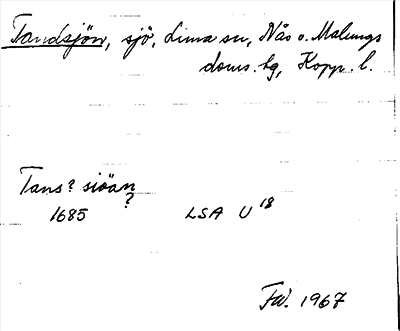 Tandsjön, sjö, Lima sn, Nås o. Malungs
doms. hg, Kopp. l.
Tans? siöan
?
1685 LSA U 18
FW. 1967